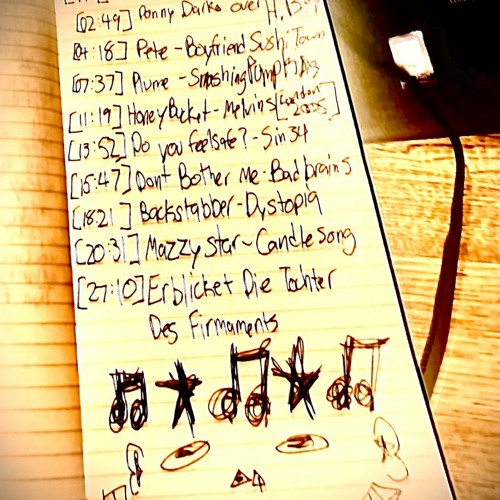 [02:49] Donny Darko over H. Bop
[04:18] Pete - Boyfriend Sushi Town
[07:37] Plume - Smashing Pumpkins
[11:19] Honey Bucket - Melvins [London 2005]
[13:52] Do you feel safe? - Sin 34
[15:47] Dont Bother Me - Bad brains
[18:21] Backstabber - Dystopia
[20:31] Mazzy Star - Candle Song
[27:10] Erblicket Die Tochter
Des Firmaments